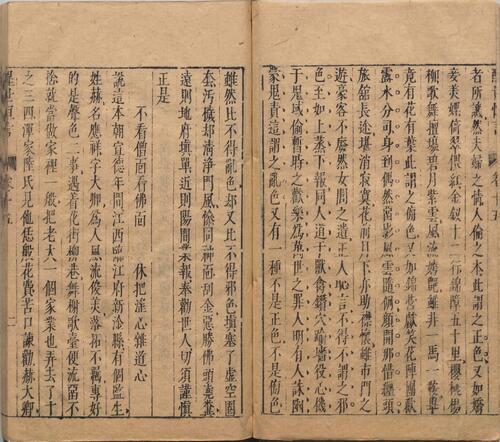 者所譏然夫婦之情人倫之本此謂之正色又如嬌
妾美婢倚翠偎紅金釵十二行錦障五十里櫻桃楊
柳歌舞擅場碧月紫雲風流姱艷雖非一馬一鞍畢
竟有花有葉此謂之傍色又如錦營獻笑花陣圖歡
露水分司身到偶然留影風雲隨例顏開那惜纏頭
旅館長途堪消寂寞花前月下亦助襟懷雖市門之
遊豪客不廢然女閭之遺正人恥言不得不謂之邪
色至如上蒸下報同人道于獸禽鑽穴踰墻役心機
于鬼蜮偷暫時之歡樂為萬世之罪人明有人誅幽
蒙鬼責這謂之亂色又有一種不是正色不是傍色
雖然比不得亂色却又比不得邪色填塞了虛空圈
套污穢却清淨門風慘同神面刮金惡勝佛頭澆糞
遠則地府填單近則陽間業報奉勸世人切須謹慎
正是
不看僧面看佛面 休把淫心雜道心
說這本朝宣德年間江西臨江府新淦縣有個監生
姓赫名應祥字大卿為人風流俊美落拓不羈專好
的是聲色二事遇着花街柳巷舞榭歌臺便流留不
捨就當做家裡一般把老大一個家業也弄去了十
之三四渾家陸氏見他恁般花費苦口諫勸赫大卿